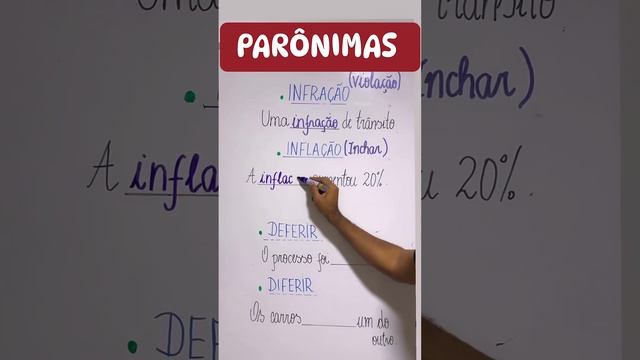 PARÔNIMAS
(Violação)
INFRAÇÃO
Uma infração de trânsito
INFLAÇÃO (Inchar)
A inflac mentou 20%.
DEFERIR
O processo foi
DIFERIR
Os carros um do
outro.